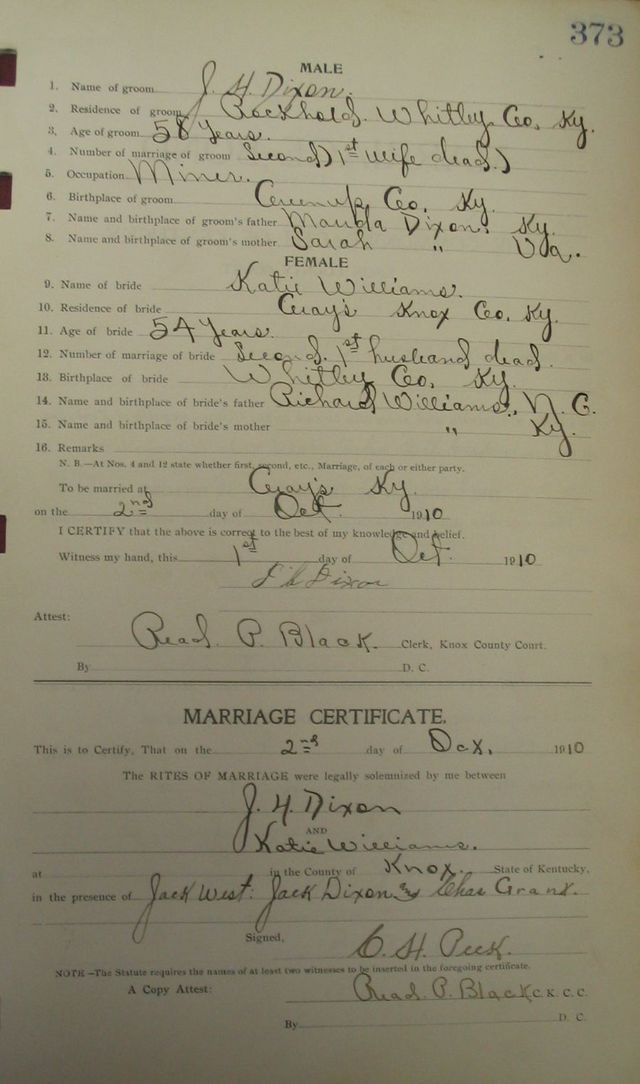 373
MALE
1. Name of groom J. H. Dixon.
2. Residence of groom Rockholds. Whitley Co, Ky.
3. Age of groom 58 Years.
4. Number of marriage of groom Second) 1st wife dead.)
5. Occupation Miner.
6. Birthplace of groom Co, Ky.
7. Name and birthplace of groom's father Dixon. Ky.
8. Name and birthplace of groom's mother Sarah " Va.
FEMALE
9. Name of bride Katie Williams.
10. Residence of bride Gray's Knox Co, Ky.
11. Age of bride 54 Years.
12. Number of marriage of bride Second. 1st husband dead.
13. Birthplace of bride Whitley Co, Ky.
14. Name and birthplace of bride's father Richard Williams, N. C.
15. Name and birthplace of bride's mother " Ky.
16. Remarks
N. B.—At Nos. 4 and 12 state whether first, second, etc., Marriage, of each or either party.
To be married at Gray's Ky.
on the 2nd day of Oct. 1910
I CERTIFY that the above is correct to the best of my knowledge and belief.
Witness my hand, this 1st day of Oct. 1910
Dixon
Attest:
Read. P. Black. Clerk, Knox County Court.
By D. C.
MARRIAGE CERTIFICATE.
This is to Certify, That on the 2nd day of Oct, 1910
The RITES OF MARRIAGE were legally solemnized by me between
J. H. Dixon
AND
Katie Williams.
at in the County of Knox. State of Kentucky,
in the presence of Jack West. Jack Dixon & Chas Grant.
Signed, C. H. Peek.
NOTE—The Statute requires the names of at least two witnesses to be inserted in the foregoing certificate.
A Copy Attest: Read. P. Black C. K. C. C.
By D. C.